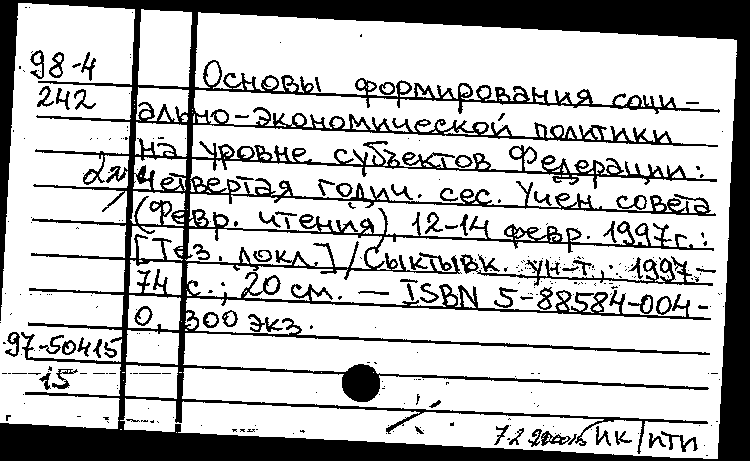 98-4 Основы формирования соци-
242 ально-экономической политики
на уровне субъектов Федерации:
2л четвертая годич. сес. Учен. совета
(Февр. чтения), 12-14 февр. 1997г.:
[Тез. докл.] / Сыктывк. ун-т, 1997.-
74 с.; 20 см. — ISBN 5-88584-004-
0, 300 экз.
97-50415
15
ПК/ПТИ